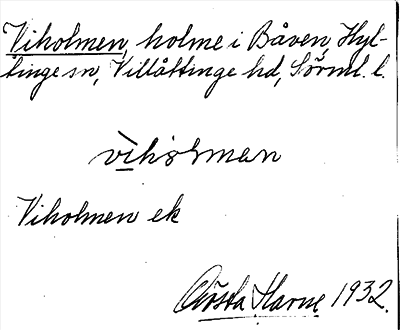 Viholmen, holme i Båven, Hyl-
tinge sn, Villåttinge hd, Sörml. l.
vihòlman
Viholmen ek
Gösta Harne 1932.